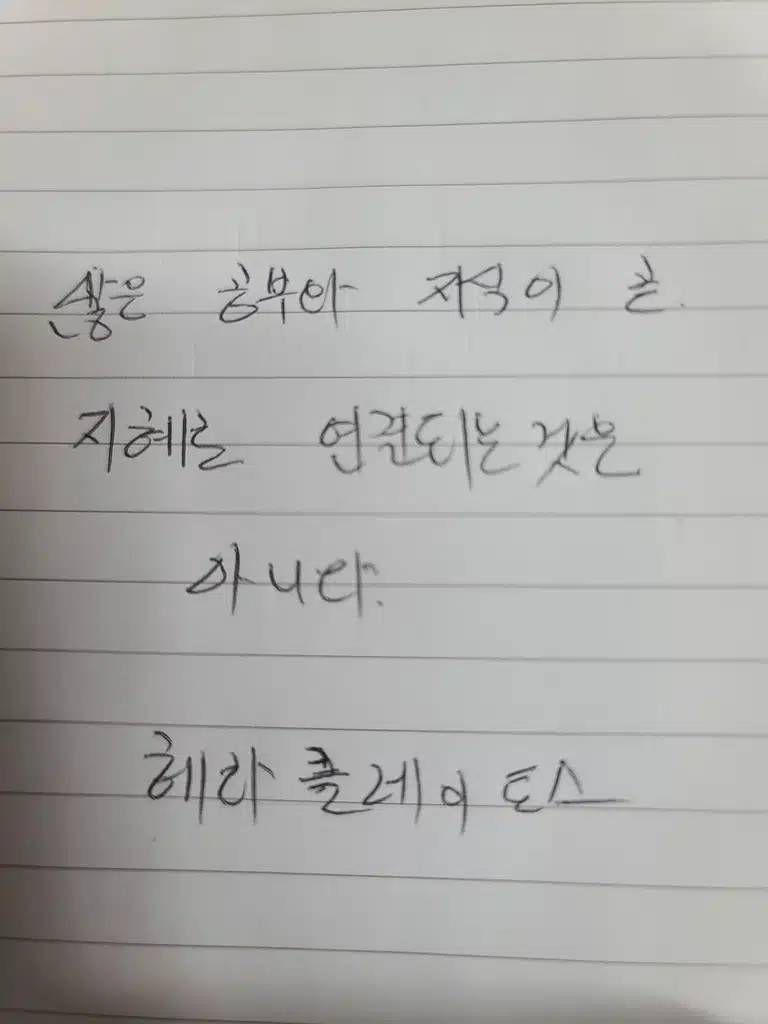 많은 공부와 지식이 큰
지혜로 연결되는 것은
아니다.
헤라클레이토스